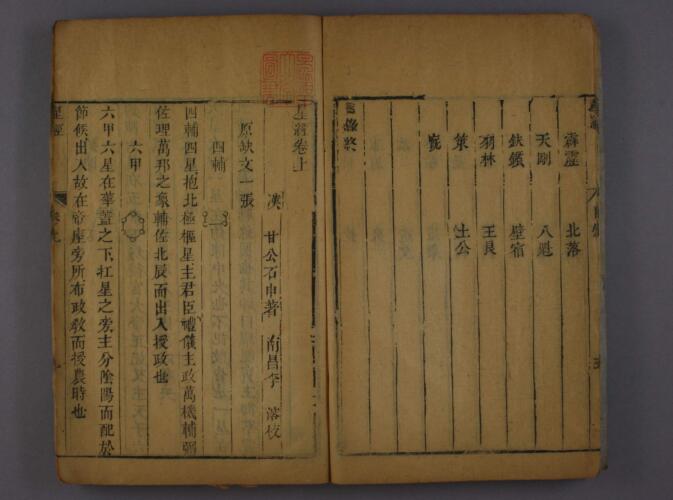 霹靂 北落
天剛 八魁
鈇鑕 壁宿
羽林 王良
策 土公
廐
星經卷上
漢 甘公石申著 南昌李 校
原缺文一張
四輔
四輔四星抱北極樞星主君臣禮儀主政萬機輔弼
佐理萬邦之象輔佐北辰而出入授政也
六甲
六甲六星在華蓋之下杠星之旁主分陰陽而配於
節候出入故在帝座旁所布政教而授農時也
星經